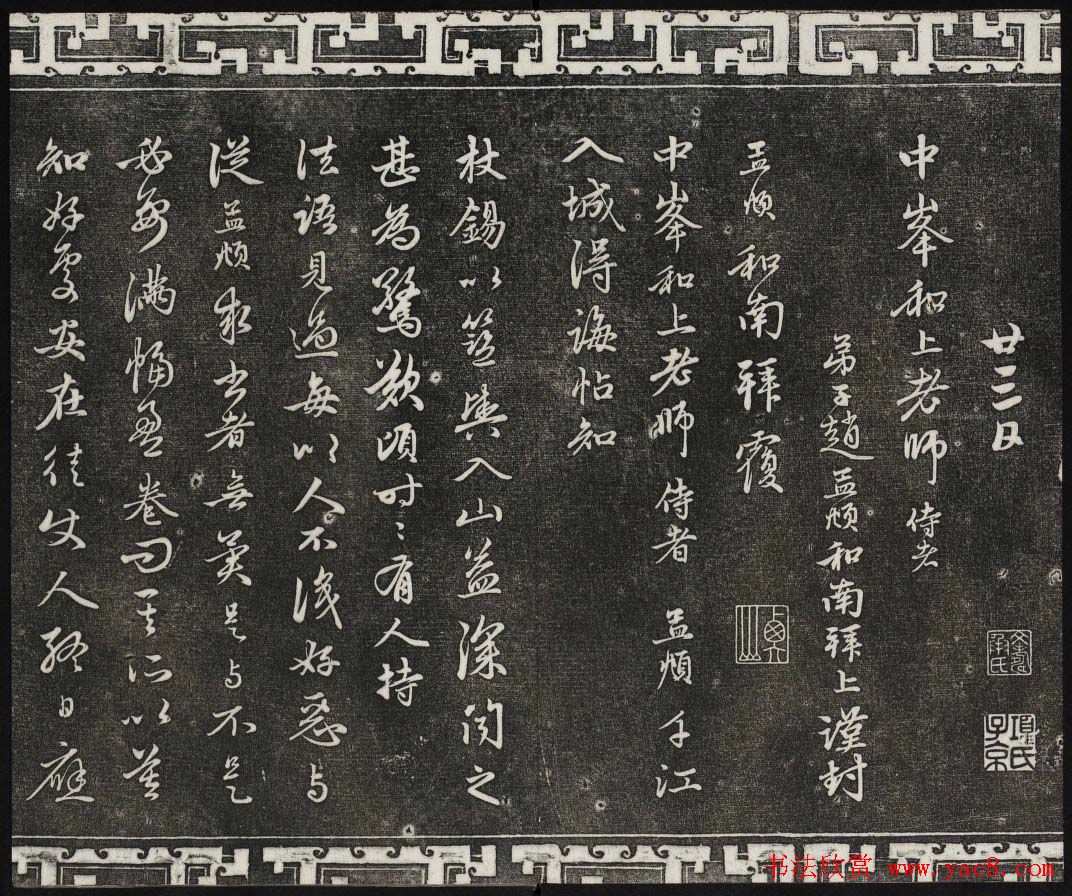 廿三日
中峯和上老師侍者
弟子趙孟頫和南拜上謹封
孟頫和南拜覆
中峯和上老師侍者孟頫千江
入城得誨帖知
杖錫以輿入山益深聞之
甚為驚歎頃時〻有人持
法語見過每以人不識好惡与
從孟頫求書者無異是与不是
必要滿幅盈卷問其所以莫
知好處安在徒使人終日應
項氏子京
书法欣赏 www.yac8.com